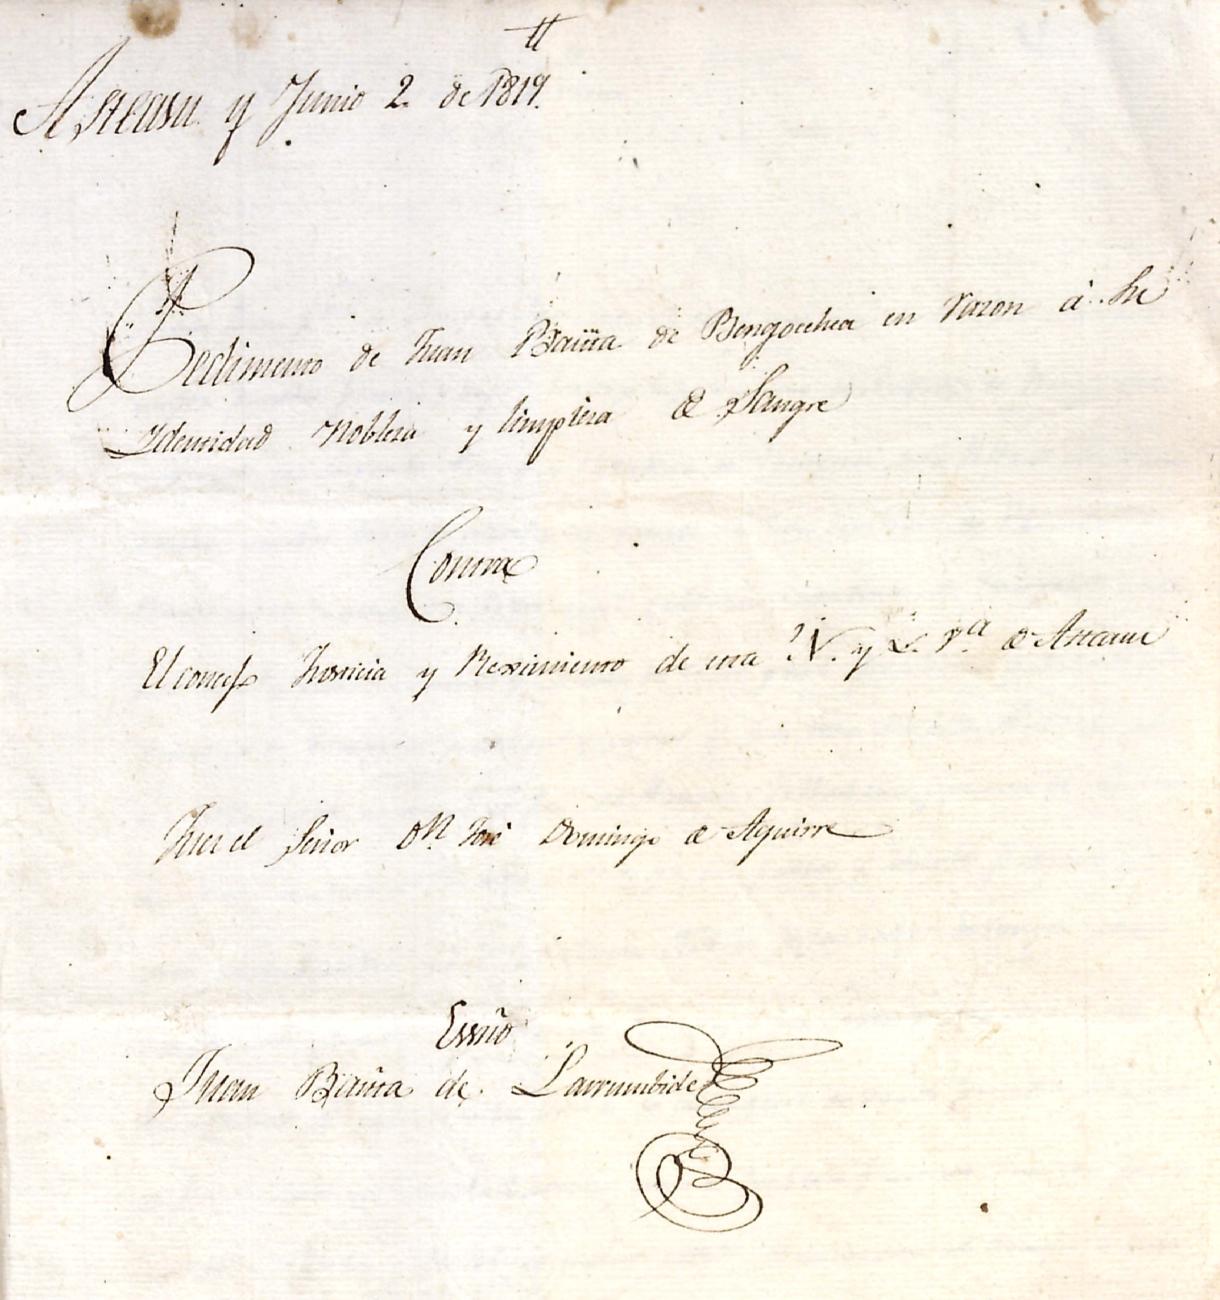 Asteasu y Junio 2. de 1819.
Pedimento de Juan Bauta de Bengoechea en razon á su
Identidad Nobleza y limpieza de Sangre
Contra
El concejo Justicia y Reximiento de esta N. y L. Va de Asteasu
Juez el Señor Dn José Domingo de Aguirre
Essno
Juan Bauta de Larrumbide